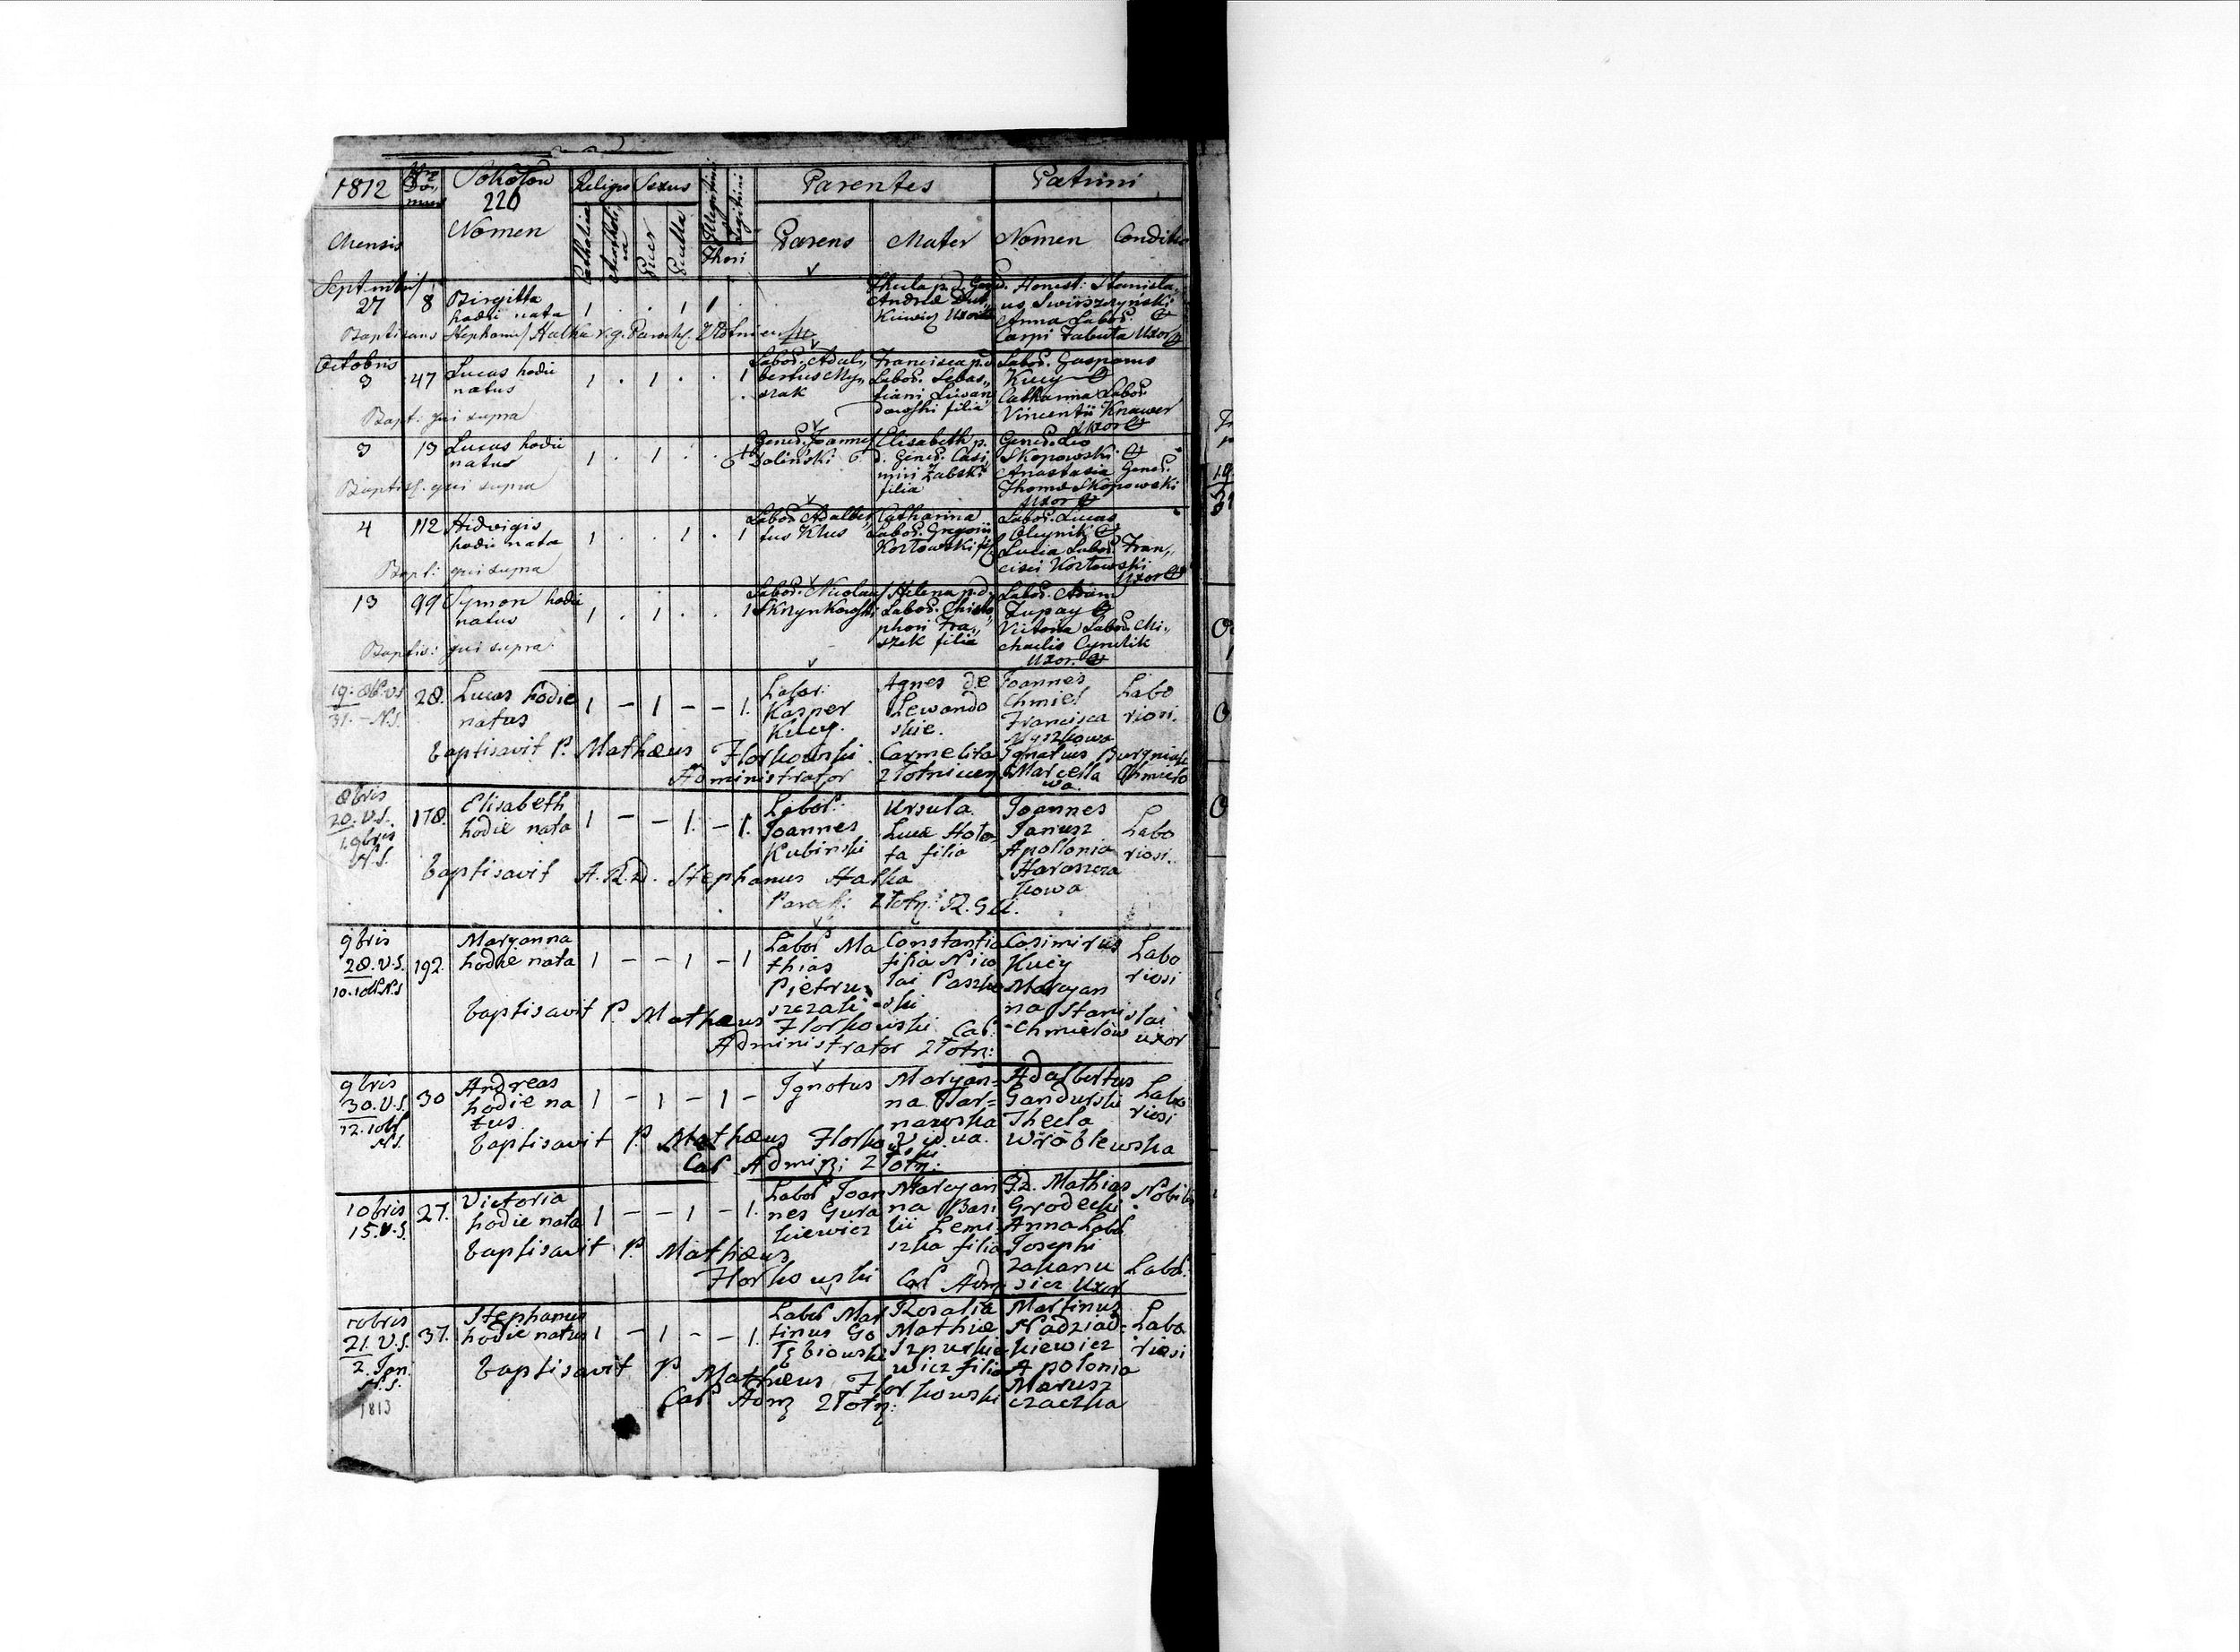 1812 Nro Domus Sokołow Religio Sexus Illegitimi Legitimi Parentes Patrini
220
Mensis Nomen Catholica Puer Puella Thori Parens Mater Nomen Conditio
Septembris
27 8 Birgitta hodie nata 1 . . 1 1 .
Thecla p. d. Gened.
Andreæ
Uxor
Honest: Stanisla„
us Swirszczynski
Anna Labor.
Carpi Zabuta Uxor
Baptisans Stephanus Halka r. g. Paroch. Złotnicensis
Octobris
3 47 Lucas hodie natus 1 . 1 . . 1
Labor. Adal„
bertus My„
szak
Francisca p. d.
Labor. Sebas„
tiani Liwan
dowski filia
Labor. Gasparus
Kucy
Catharina Labor.
Vincentii Knawer
Uxor
Bapt: qui supra
3 13 Lucas hodie natus 1 . 1 . . 1
Gened. Joannes
Soliński
Elisabeth p.
d. Gened. Casi„
miri Zabski
filia
Gened. Leo
Skopowski
Anastasia Gened.
Thomæ Skopowski
Uxor
Baptis. qui supra
4 112 Hidwigis hodie nata 1 . . 1 . 1
Labor. Adalber
tus Klus
Catharina
Labor. Gregorii
Kozłowski
Labor. Lucas
Oleynik
Lucia Labor. Fran„
cisci Kozłowski
Uxor
Bapt: qui supra
13 99 Symon hodie natus 1 . 1 . . 1
Labor. Nicolaus
Skrzynkowski
Helena p. d.
Labor. Christo
phori Fra„
szek filia
Labor. Adam
Zupay
Victoria Labor. Mi„
chaelis Cyrulik
Uxor.
Baptis: qui supra
19. 8b. V.S.
31. - N.S.
28. Lucas hodie natus 1 – 1 – – 1.
Labor:
Kasper
Kucy.
Agnes de
Lewando
skie.
Joannes
Chmiel
Francisca
Myszkowa
Labo
riosi.
baptisavit P. Mathæus Florkowski Carmelita Ignatius Burgniak
Administrator Złotnicen Marcella Chmielo
wa.
8bris
20. V.S.
1. 9bris
N.S.
178. Elisabeth hodie nata 1 – – 1. – 1.
Labor:
Joannes
Kubinski
Ursula
Lucæ Hoło
ta filia
Joannes
Janusz
Apollonia
Haraszcza
kowa
Labo
riosi.
baptisavit A.R.D. Stephanus Halka
Paroch: Złotn: R. G. U.
9bris
28. V.S.
10. 10bN.S
192. Maryanna hodie nata 1 – – 1 – 1
Labor Ma
thias
Pietru
szczak
Constantia
filia Nico
lai Paszko
ski
Casimirus
Kucy
Maryan
na Stanislai
Chmielow uxor
Labo
riosi
baptisavit P. Mathæus Florkowski Car:
Administrator Złotn:
9bris
30. V.S.
12. 10b
N.S.
30 Andreas
hodie na
tus
1 – 1 – 1 –
Ignotus
Maryan=
na Tar=
nawska
vidua.
Adalbertus
Gandurski
Thecla
Wróblewska
Labo
riosi
baptisavit P. Mathæus Florkowski
Car Admini: Złotn:
10bris
15. V.S.
27. Victoria hodie nata 1 – – 1 – 1.
Labor Joan
nes Gura
kiewicz
Maryan
na Basi
lii Lemi
szka filia
Gd. Mathias
Grodecki
Anna Labor
Josephi
Zakaru
sicz Uxor
Nobiles
Labor.
baptisavit P. Mathæus
Florkowski Car Adm
10bris
21. V.S.
2. Jan.
N.S.
1813
37. Stephanus
hodie natus 1 – 1 – – 1.
Labor Mar
tinus Go
łębiowski
Rosalia
Mathiæ
Szpurkie
wicz filia
Martinus
Nadziad=
kiewicz
Apolonia
Marusz
czaczka
Labo
riosi
baptisavit P Mathæus Florkowski
Car Adm Złotn: